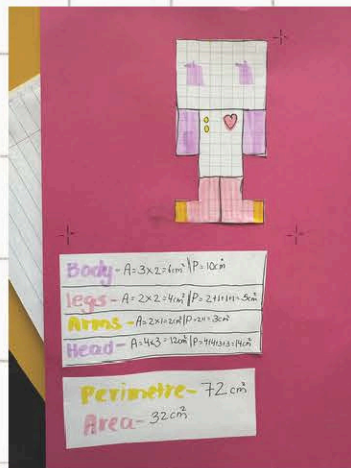 Body - A=3×2=6cm² | P=10cm
legs - A=2×2=4cm² | P=2+1+1+1=5cm
Arms - A=2×1=2cm² | P=2+1=3cm
Head - A=4×3=12cm² | P=4+4+3+3=14cm
Perimetre - 72cm²
Area - 32cm²